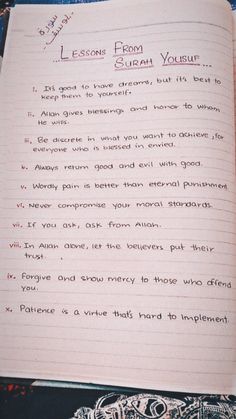 سورة
يوسف
LESSONS FROM
SURAH YOUSUF
i. It's good to have dreams, but it's best to
keep them to yourself.
ii. Allah gives blessings and honor to whom
He wills.
iii. Be discrete in what you want to achieve, for
everyone who is blessed in envied.
iv. Always return good and evil with good.
v. Wordly pain is better than eternal punishment
vi. Never compromise your moral standards.
vii. If you ask, ask from Allah.
viii. In Allah alone, let the believers put their
trust.
ix. Forgive and show mercy to those who offend
you.
x. Patience is a virtue that's hard to implement.